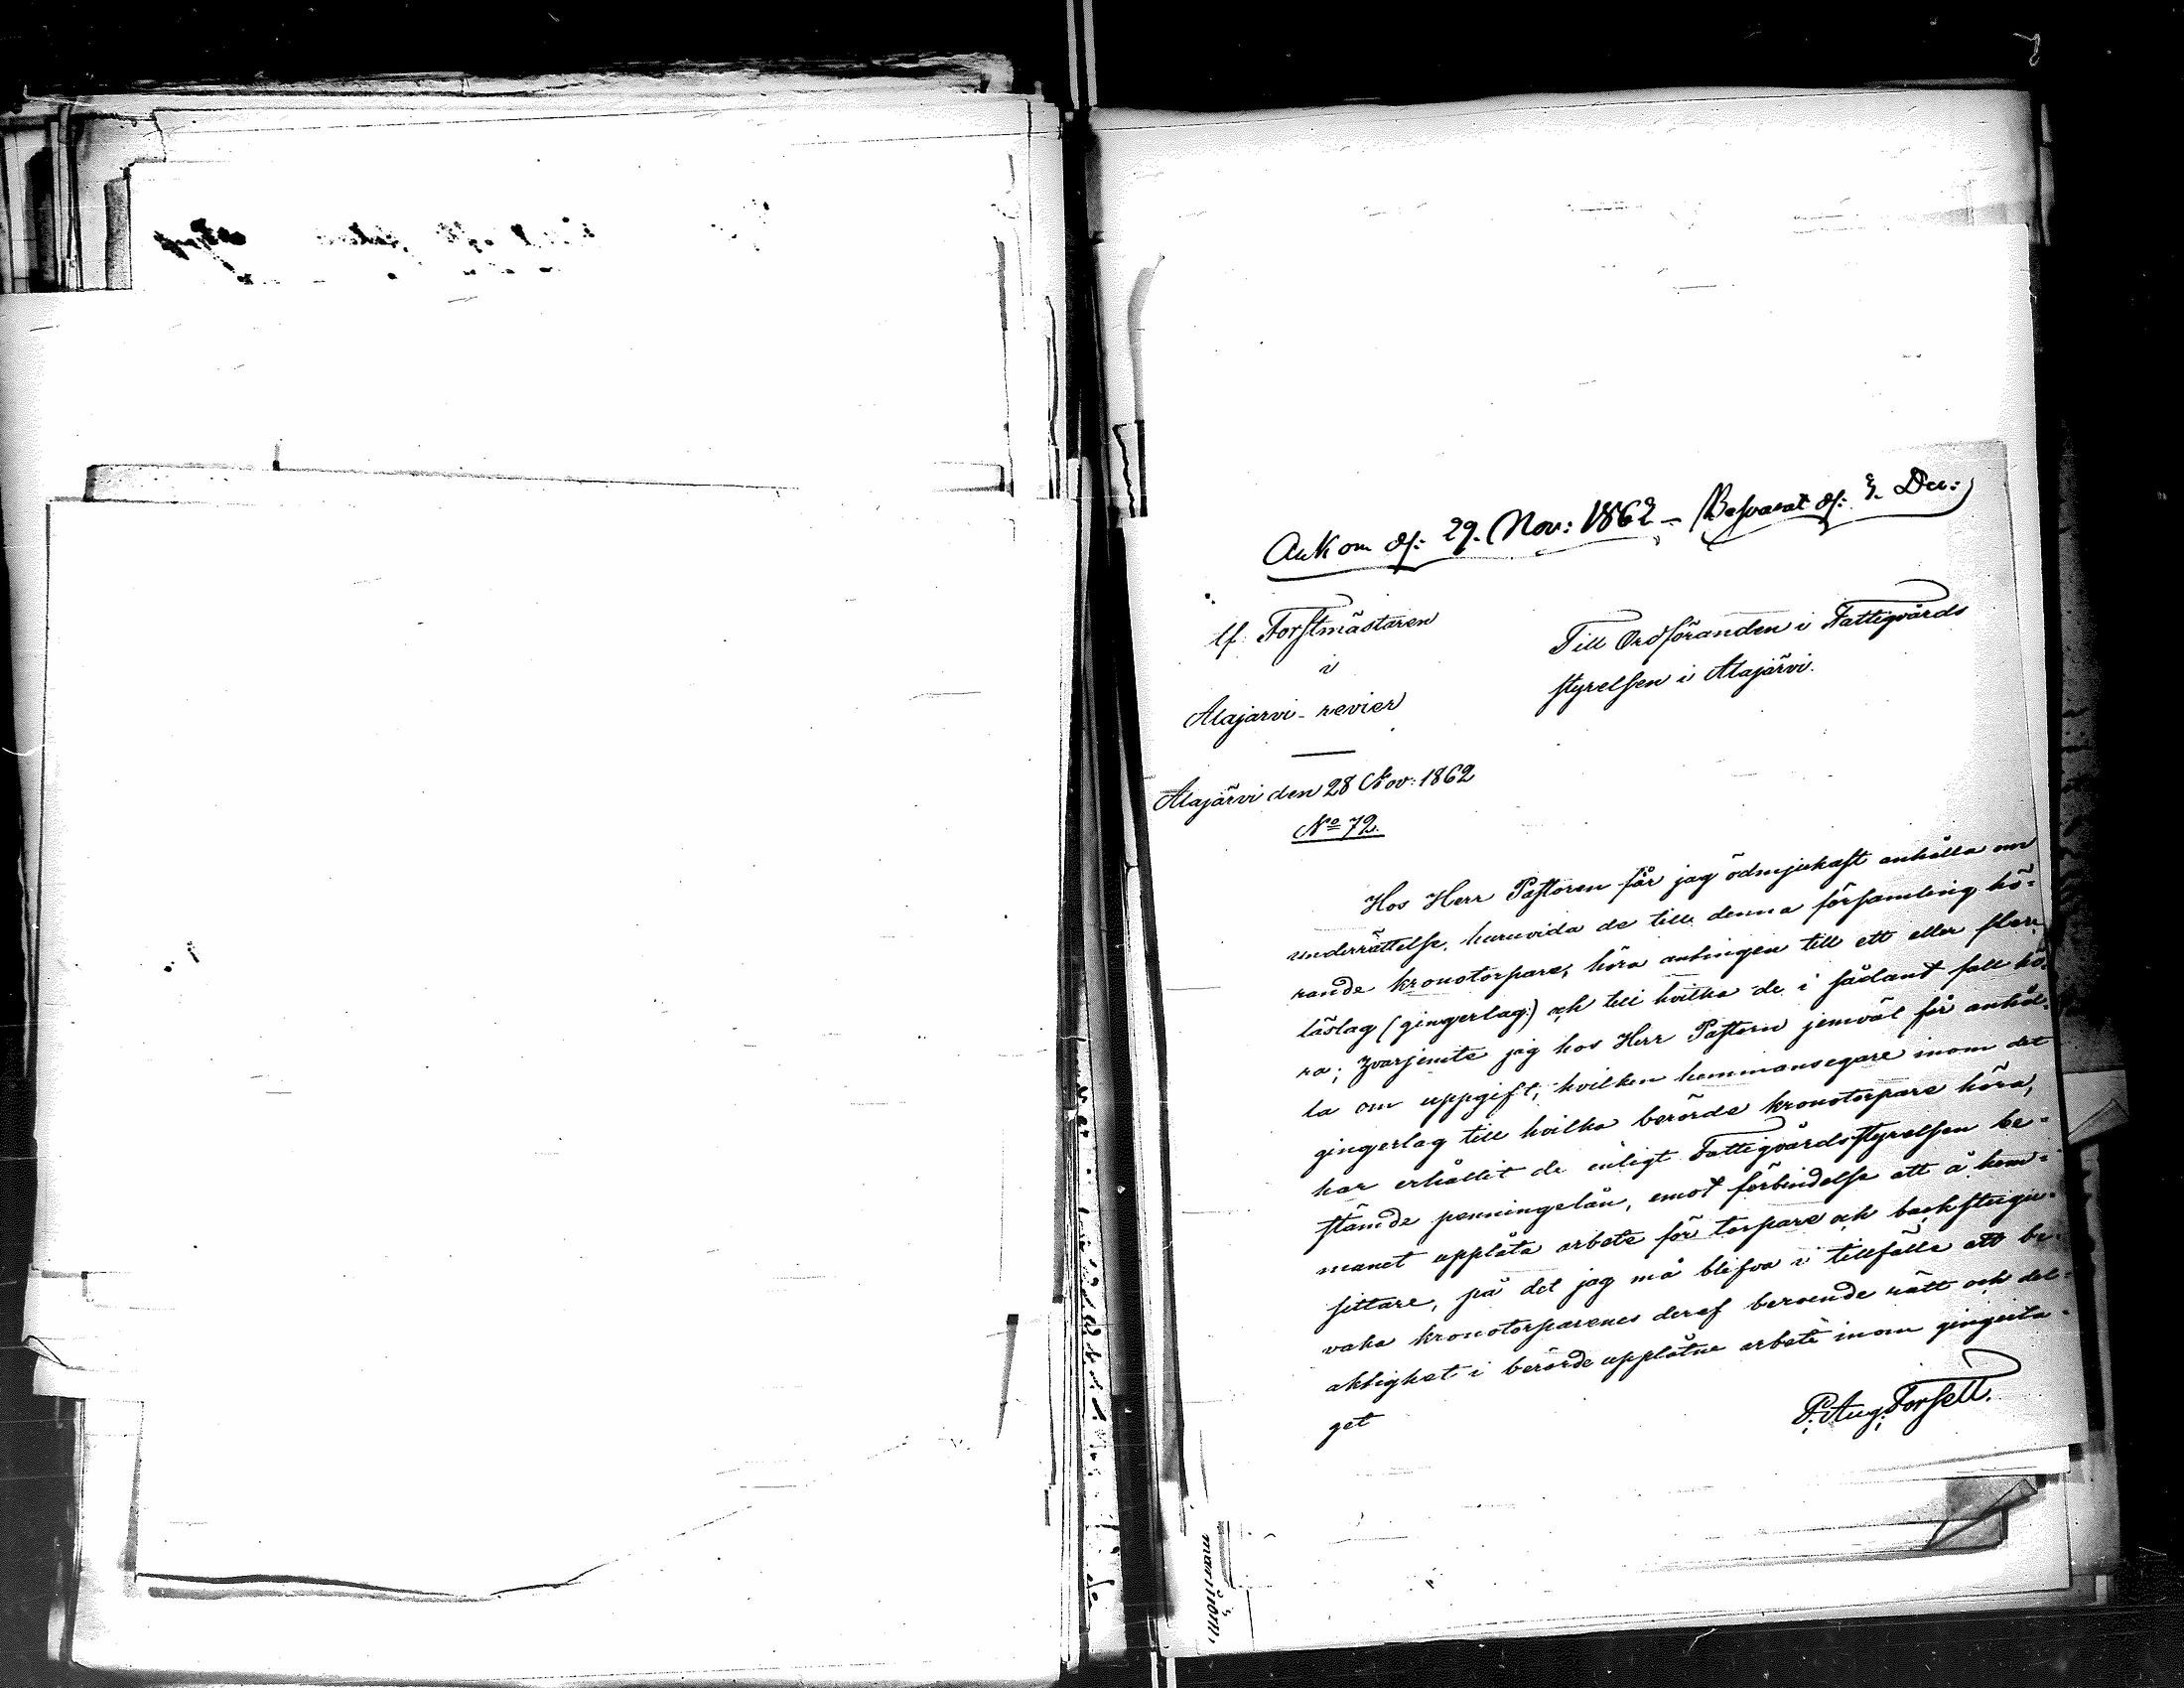 Ankom d/: 29. Nov: 1862 — Besvarat d/: 3. Dec:
tf. Forstmästaren
i
Alajärvi-revier
Alajärvi den 28 Nov: 1862
No 72.
Till Ordföranden i Fattigvårds
styrelsen i Alajärvi.
Hos Herr Pastoren får jag ödmjukast anhålla om
underrättelse, huruvida de till denna församling hö=
rande kronotorpare, höra antingen till ett eller flera
läslag (gingerlag:) och till hvilka de i sådant fall hö=
ra; hvarjemte jag hos Herr Pastorn jemväl får anhål=
la om uppgift, hvilken hemmansegare inom det
gingerlag till hvilka berörde kronotorpare höra,
har erhållit de enligt Fattigvårdsstyrelsen be=
stämde penningelån, emot förbindelse att å hem=
manet upplåta arbete för torpare och backstugu=
sittare, på det jag må blifva i tillfälle att be=
vaka kronotorparenes deraf beroende rätt och del=
aktighet i berörde upplåtne arbete inom gingerla=
get
P. Aug. Forsell.